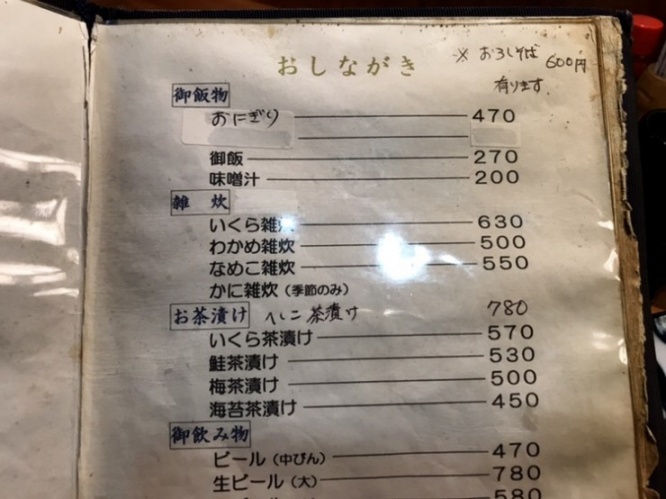 おしながき
※ おろしそば 600円
有ります
御飯物
おにぎり 470
御飯 270
味噌汁 200
雑炊
いくら雑炊 630
わかめ雑炊 500
なめこ雑炊 550
かに雑炊(季節のみ)
お茶漬け へしこ茶漬け 780
いくら茶漬け 570
鮭茶漬け 530
梅茶漬け 500
海苔茶漬け 450
御飲み物
ビール(中びん) 470
生ビール(大) 780
580